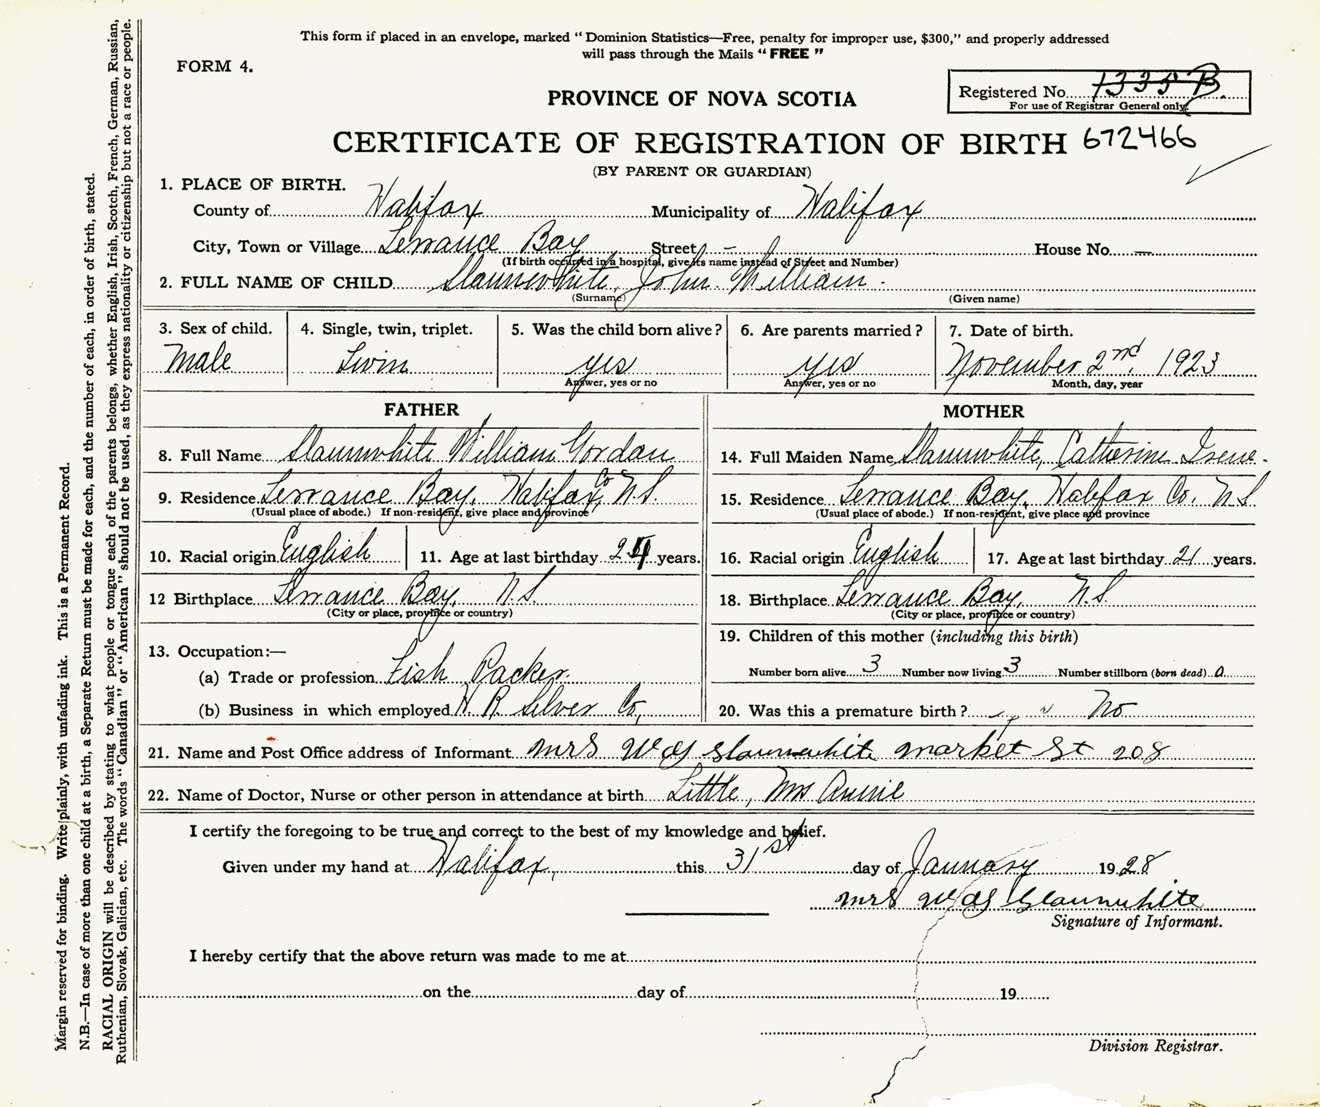 This form if placed in an envelope, marked "Dominion Statistics—Free, penalty for improper use, $300," and properly addressed
will pass through the Mails "FREE"
FORM 4.
Registered No. 1335 B.
For use of Registrar General only.
PROVINCE OF NOVA SCOTIA
CERTIFICATE OF REGISTRATION OF BIRTH 672466
(BY PARENT OR GUARDIAN)
1. PLACE OF BIRTH.
County of Halifax Municipality of Halifax
City, Town or Village Terrance Bay Street – House No. —
(If birth occurred in a hospital, give its name instead of Street and Number)
2. FULL NAME OF CHILD Slaunwhite, John William.
(Surname) (Given name)
3. Sex of child. 4. Single, twin, triplet. 5. Was the child born alive? 6. Are parents married? 7. Date of birth.
Male Twin yes yes November 2nd, 1923
Answer, yes or no Answer, yes or no Month, day, year
FATHER MOTHER
8. Full Name Slaunwhite William Gordan 14. Full Maiden Name Slaunwhite, Catherine Irene.
9. Residence Terrance Bay, Halifax Co N.S. 15. Residence Terrance Bay, Halifax Co, N.S
(Usual place of abode.) If non-resident, give place and province (Usual place of abode.) If non-resident, give place and province
10. Racial origin English 11. Age at last birthday 24 years. 16. Racial origin English 17. Age at last birthday 21 years.
12 Birthplace Terrance Bay, N.S. 18. Birthplace Terrance Bay, N.S.
(City or place, province or country) (City or place, province or country)
19. Children of this mother (including this birth)
13. Occupation:—
(a) Trade or profession Fish Packer. Number born alive 3 Number now living 3 Number stillborn (born dead) 0
(b) Business in which employed H R Silver Co, 20. Was this a premature birth? No
21. Name and Post Office address of Informant Mrs W G Slaunwhite Market St 208
22. Name of Doctor, Nurse or other person in attendance at birth Little, Mrs Annie
I certify the foregoing to be true and correct to the best of my knowledge and belief.
Given under my hand at Halifax, this 31st day of January 1928
Mrs W G Slaunwhite
Signature of Informant.
I hereby certify that the above return was made to me at
on the day of 19
Division Registrar.
Margin reserved for binding. Write plainly, with unfading ink. This is a Permanent Record.
N.B.—In case of more than one child at a birth, a Separate Return must be made for each, and the number of each, in order of birth, stated.
RACIAL ORIGIN will be described by stating to what people or tongue each of the parents belongs, whether English, Irish, Scotch, French, German, Russian,
Ruthenian, Slovak, Galician, etc. The words "Canadian" or "American" should not be used, as they express nationality or citizenship but not a race or people.